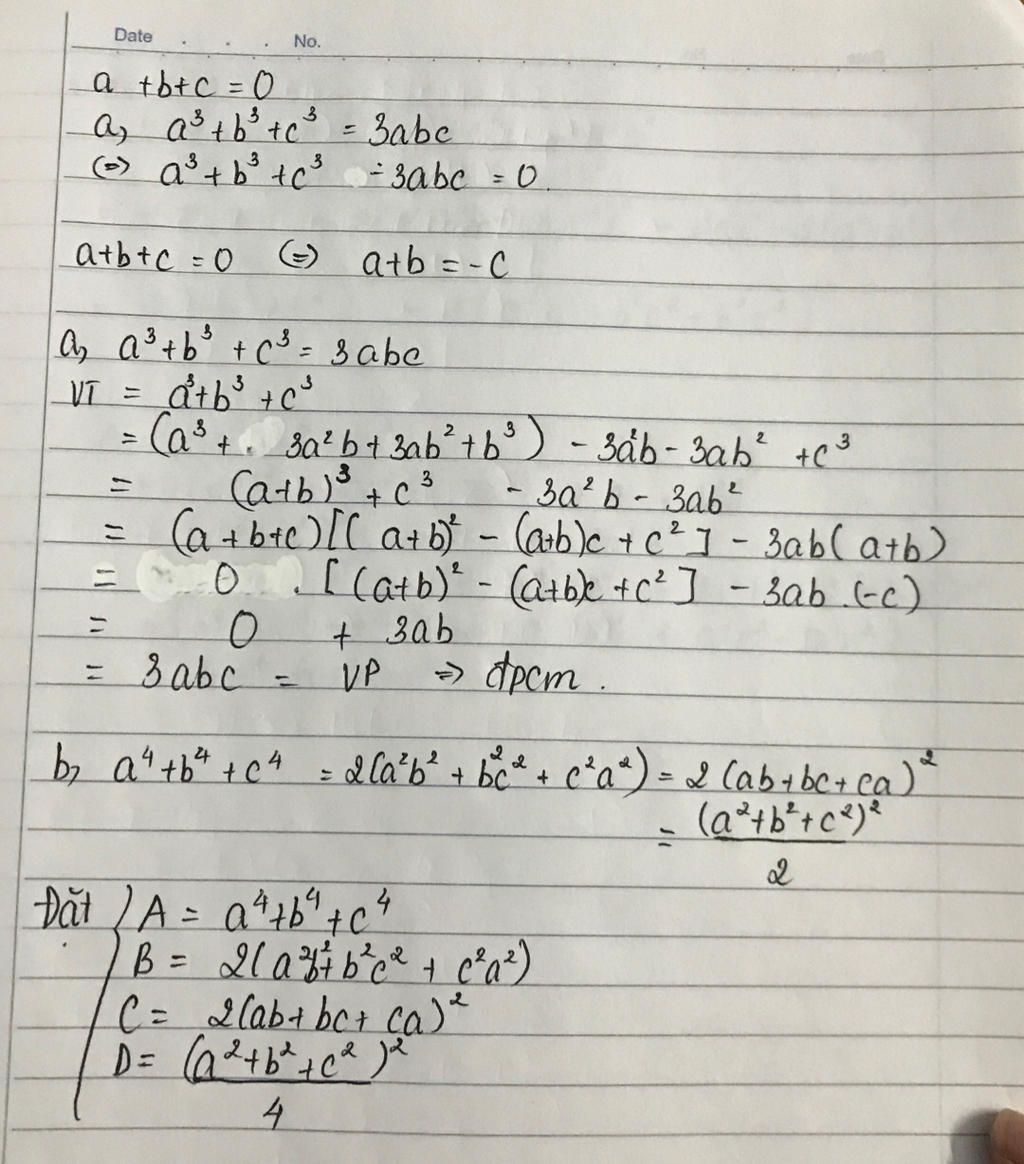 Date . . . No.
a + b + c = 0
a, a³ + b³ + c³ = 3abc
(=) a³ + b³ + c³ - 3abc = 0.
a + b + c = 0 (=) a + b = - c
a, a³ + b³ + c³ = 3abc
VT = a³ + b³ + c³
= (a³ + 3a²b + 3ab² + b³) - 3a²b - 3ab² + c³
= (a+b)³ + c³ - 3a²b - 3ab²
= (a + b + c)[(a+b)² - (a+b)c + c²] - 3ab(a+b)
= 0 . [(a+b)² - (a+b)c + c²] - 3ab.(-c)
= 0 + 3ab
= 3abc = VP => đpcm.
b, a⁴ + b⁴ + c⁴ = 2(a²b² + b²c² + c²a²) = 2(ab + bc + ca)²
= (a² + b² + c²)²
2
Đặt { A = a⁴ + b⁴ + c⁴
B = 2(a²b² + b²c² + c²a²)
C = 2(ab + bc + ca)²
D = (a² + b² + c²)²
4